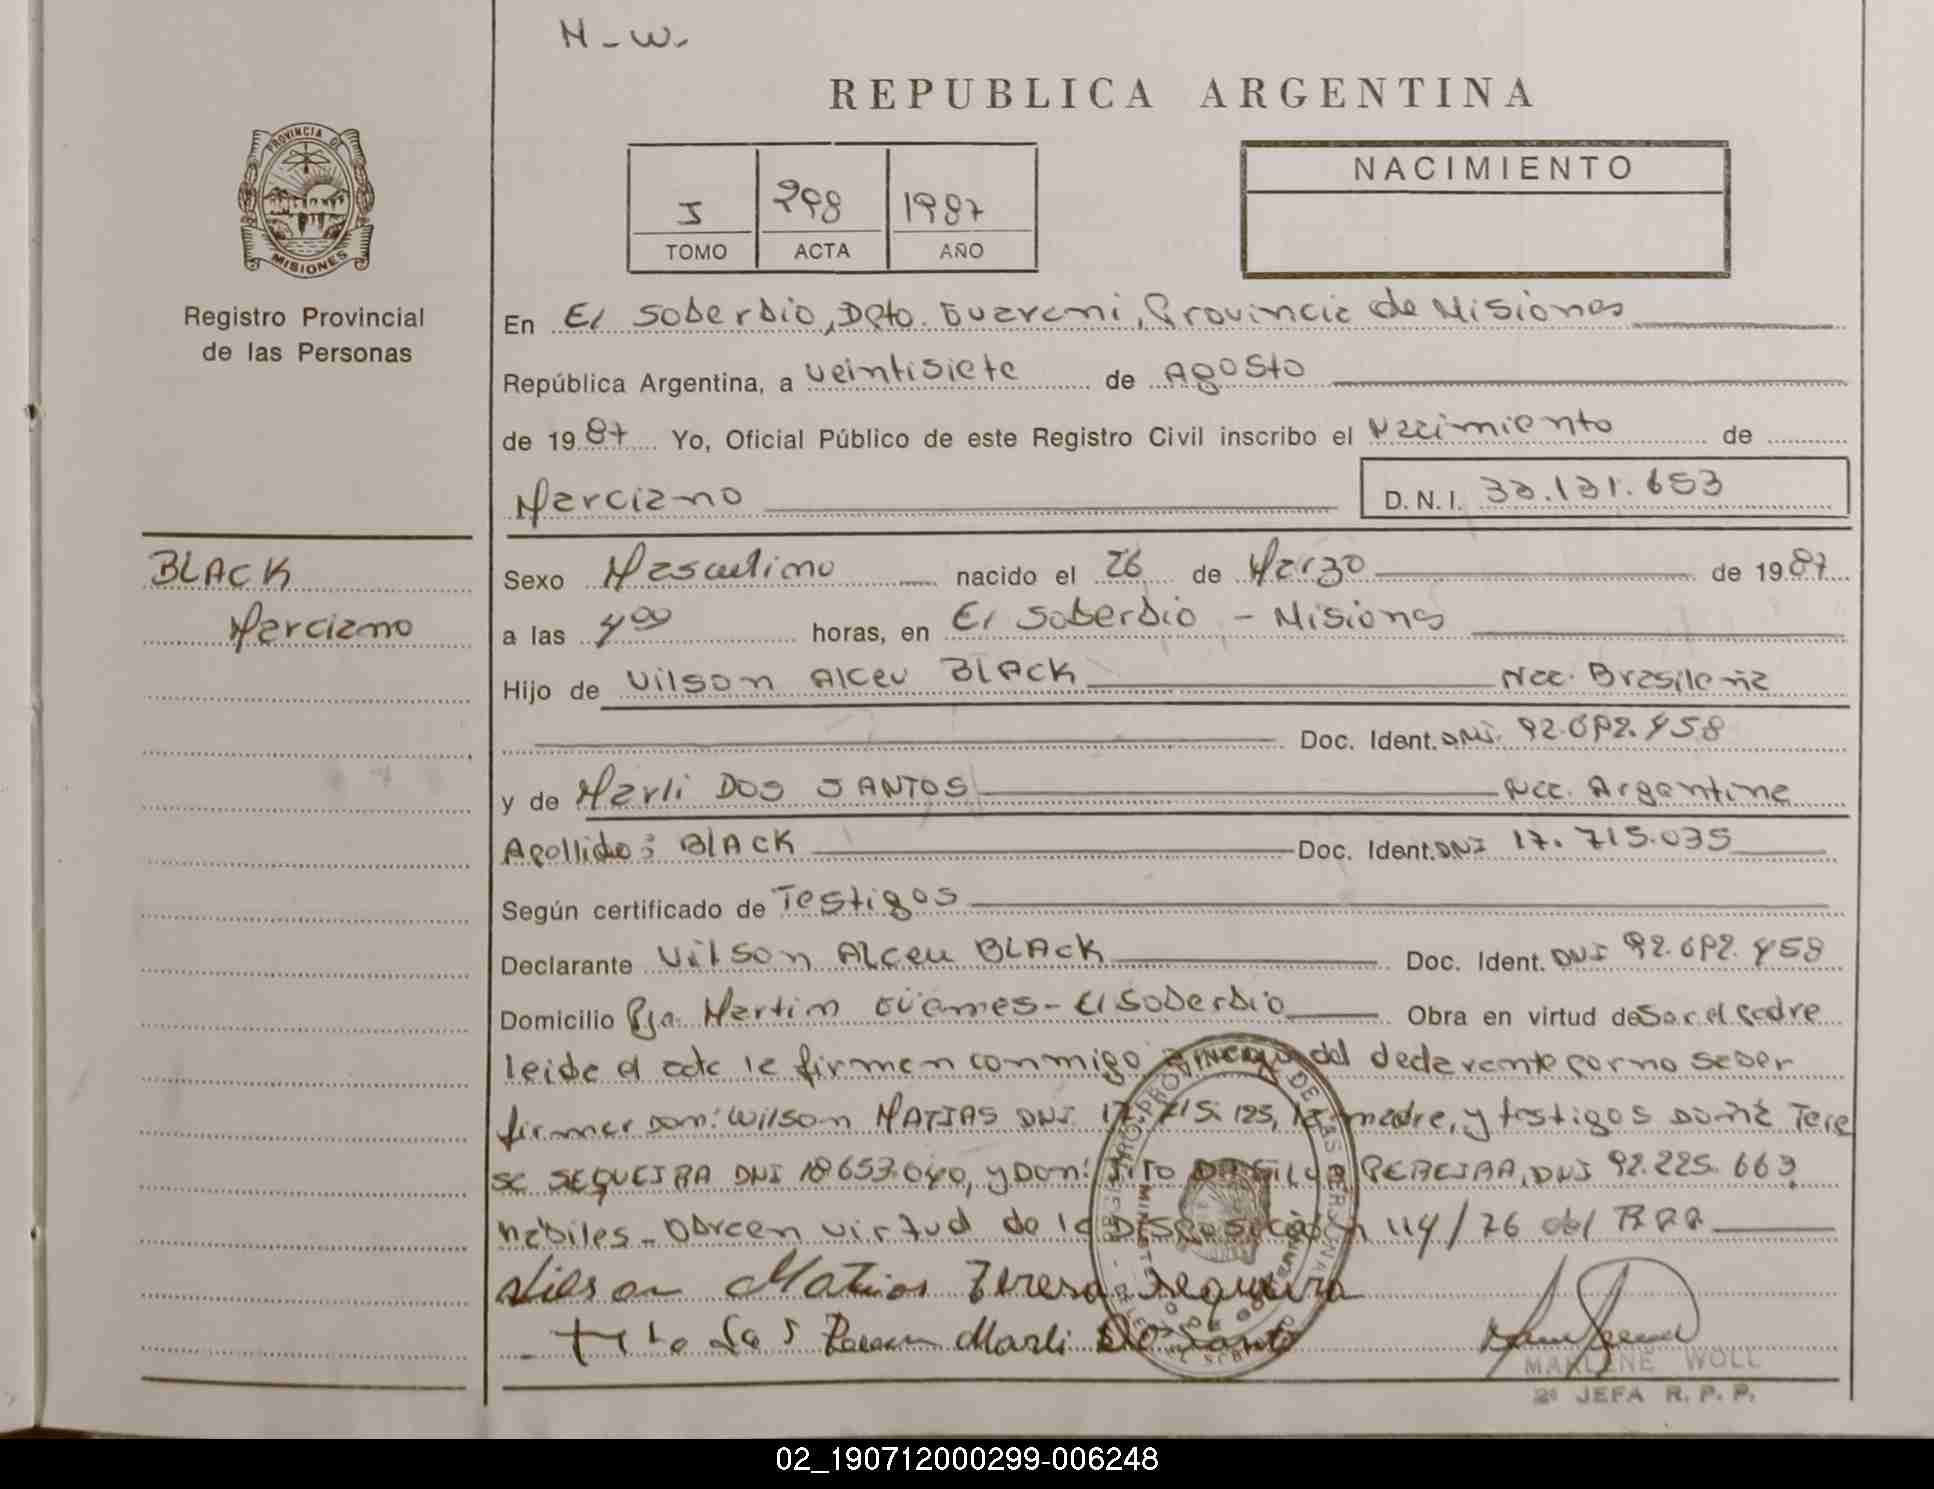 N-W-
REPUBLICA ARGENTINA
PROVINCIA DE
MISIONES
Registro Provincial
de las Personas
I 298 1987
TOMO ACTA AÑO
NACIMIENTO
En El Soberbio, Dpto. Guarani, Provincia de Misiones
República Argentina, a veintisiete de Agosto
de 1987 Yo, Oficial Público de este Registro Civil inscribo el Nacimiento de
Marciano D.N.I. 33.131.653
BLACK
Marciano
Sexo Masculino nacido el 26 de Marzo de 1987
a las 4 00 horas, en El Soberbio - Misiones
Hijo de Vilson Alceu BLACK Nac. Brasileña
Doc. Ident. DNI. 92.692.458
y de Marli DOS SANTOS Nac. Argentina
Apellido: BLACK Doc. Ident. DNI 17.715.035
Según certificado de Testigos
Declarante Vilson Alceu BLACK Doc. Ident. DNI 92.692.458
Domicilio Pja. Martin Güemes - El Soberbio Obra en virtud de Ser el padre
leida el acta la firman conmigo a ruego del declarante por no saber
firmar Don: Wilson MATIAS DNI 17.715.125, la madre, y testigos Doña Tere
sa SEQUEIRA DNI 18653.040, y Don: TITO DA SILVA PEREIRA, DNI 92.225.663
habiles - Obra en virtud de la Disposición 114/76 del RPP
Wilson Matias Teresa Sequeira
Tito Da S Marli Do Santo
MARLENE WOLL
2º JEFA R. P. P.
02_190712000299-006248